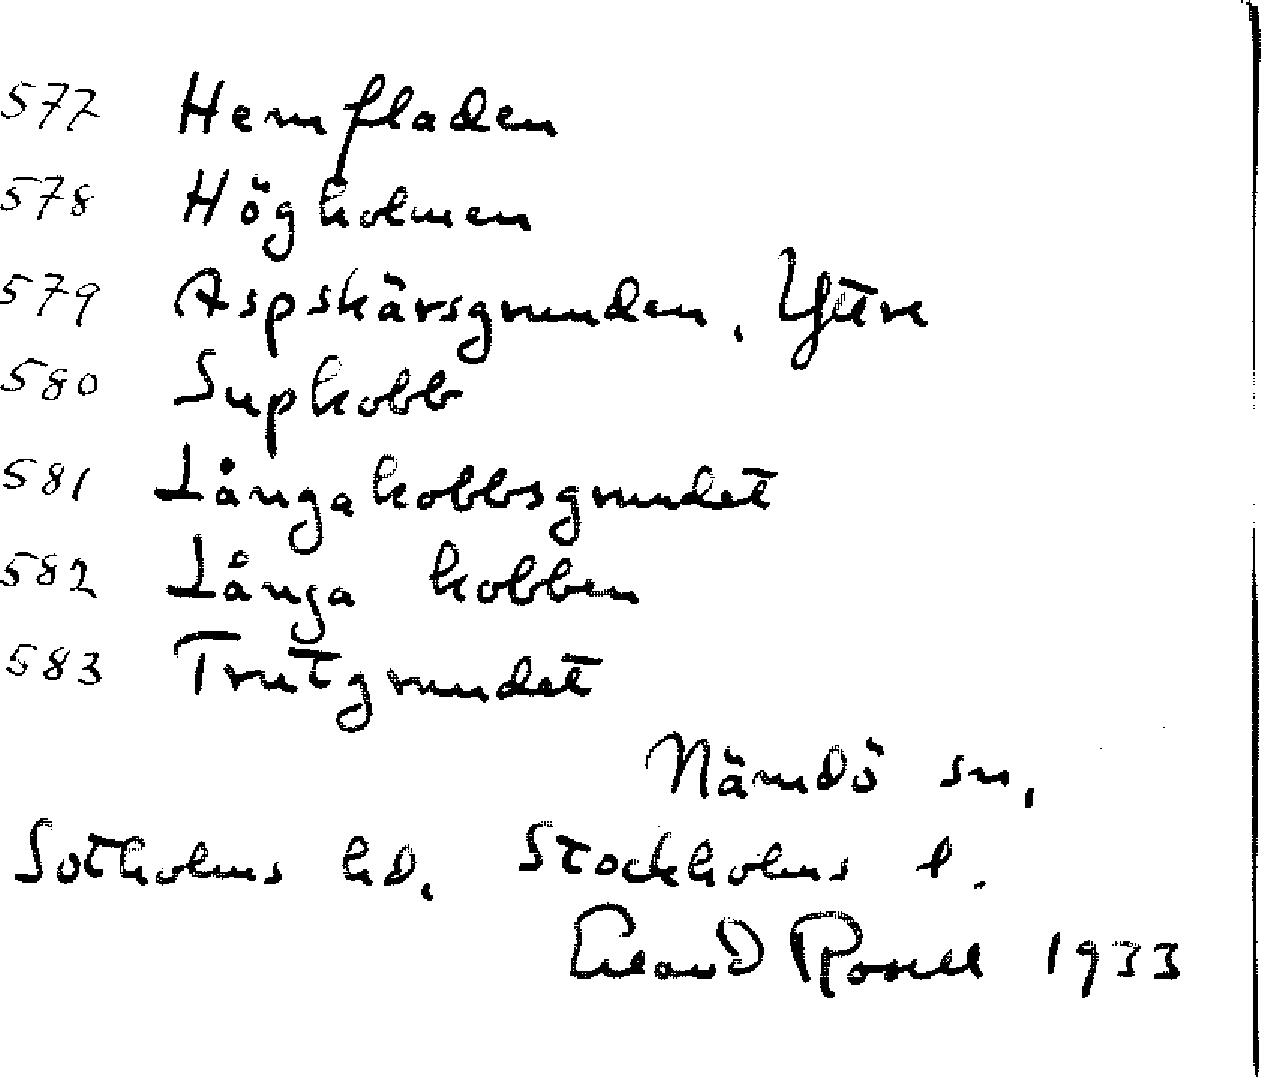 577 Hemfladen
578 Högholmen
579 Aspskärsgrunden, Yttre
580 Supkobb
581 Långakobbsgrundet
582 Långa kobben
583 Trutgrundet
Nämdö sn,
Sotholms hd, Stockholms l.
Erland Rosell 1933